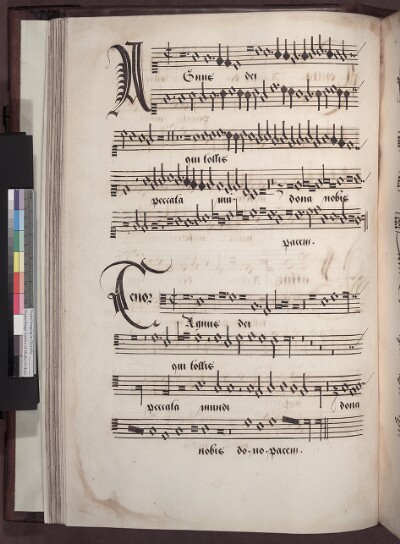 Agnus dei
qui tollis
peccata mun- dona nobis
pacem.
Tenor
Agnus dei
qui tollis
peccata mundi dona
nobis do-no-pacem.